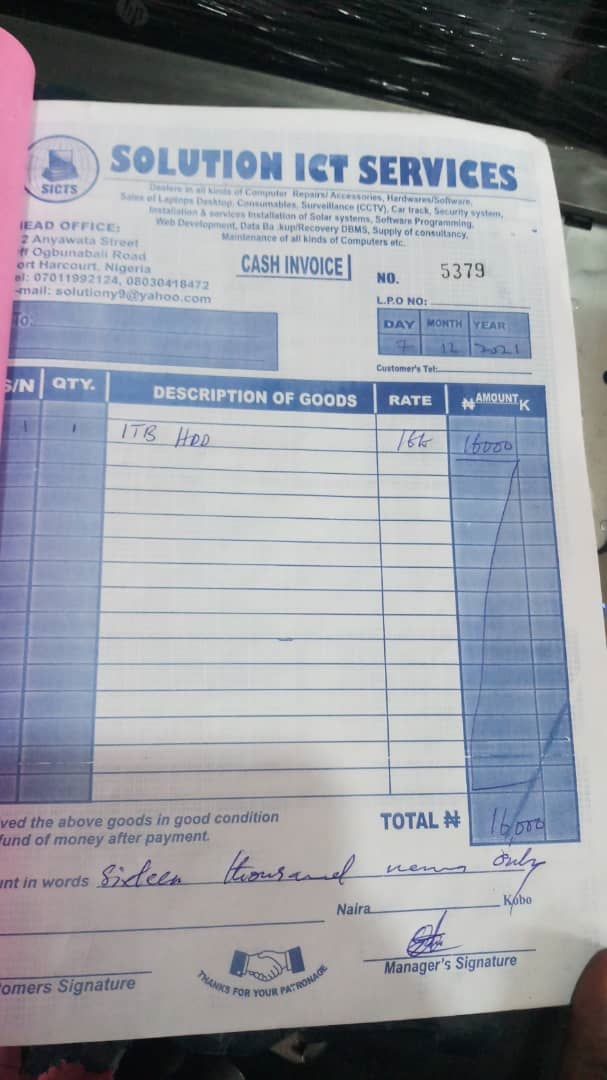 SICTS
SOLUTION ICT SERVICES
Dealers in all kinds of Computer Repairs/ Accessories, Hardwares/Software,
Sales of Laptops Desktop, Consumables, Surveillance (CCTV), Car track, Security system,
Installation & services Installation of Solar systems, Software Programming,
Web Development, Data Ba kup/Recovery DBMS, Supply of consultancy,
Maintenance of all kinds of Computers etc.
EAD OFFICE:
2 Anyawata Street
ff Ogbunabali Road
ort Harcourt, Nigeria
el: 07011992124, 08030418472
-mail: solutiony9@yahoo.com
CASH INVOICE
NO. 5379
L.P.O NO:
TO:
DAY MONTH YEAR
7 12 2021
Customer's Tel:
S/N QTY. DESCRIPTION OF GOODS RATE ₦ AMOUNT K
1 1 1TB HDD 16k 16000
ved the above goods in good condition
fund of money after payment.
TOTAL ₦ 16,000
unt in words Sixteen thousand only
Naira Kobo
omers Signature
THANKS FOR YOUR PATRONAGE
Manager's Signature